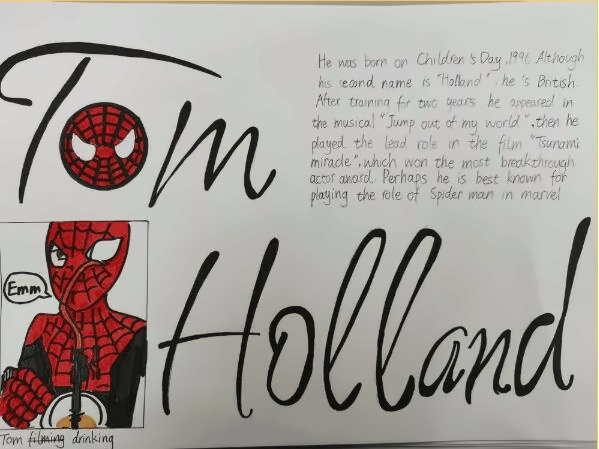 Tom
He was born on Children's Day, 1996. Although
his second name is "Holland", he's British.
After training for two years he appeared in
the musical "Jump out of my world", then he
played the lead role in the film "Tsunami
miracle", which won the most breakthrough
actor award. Perhaps he is best known for
playing the role of Spider man in marvel.
Holland
Emm
Tom filming drinking